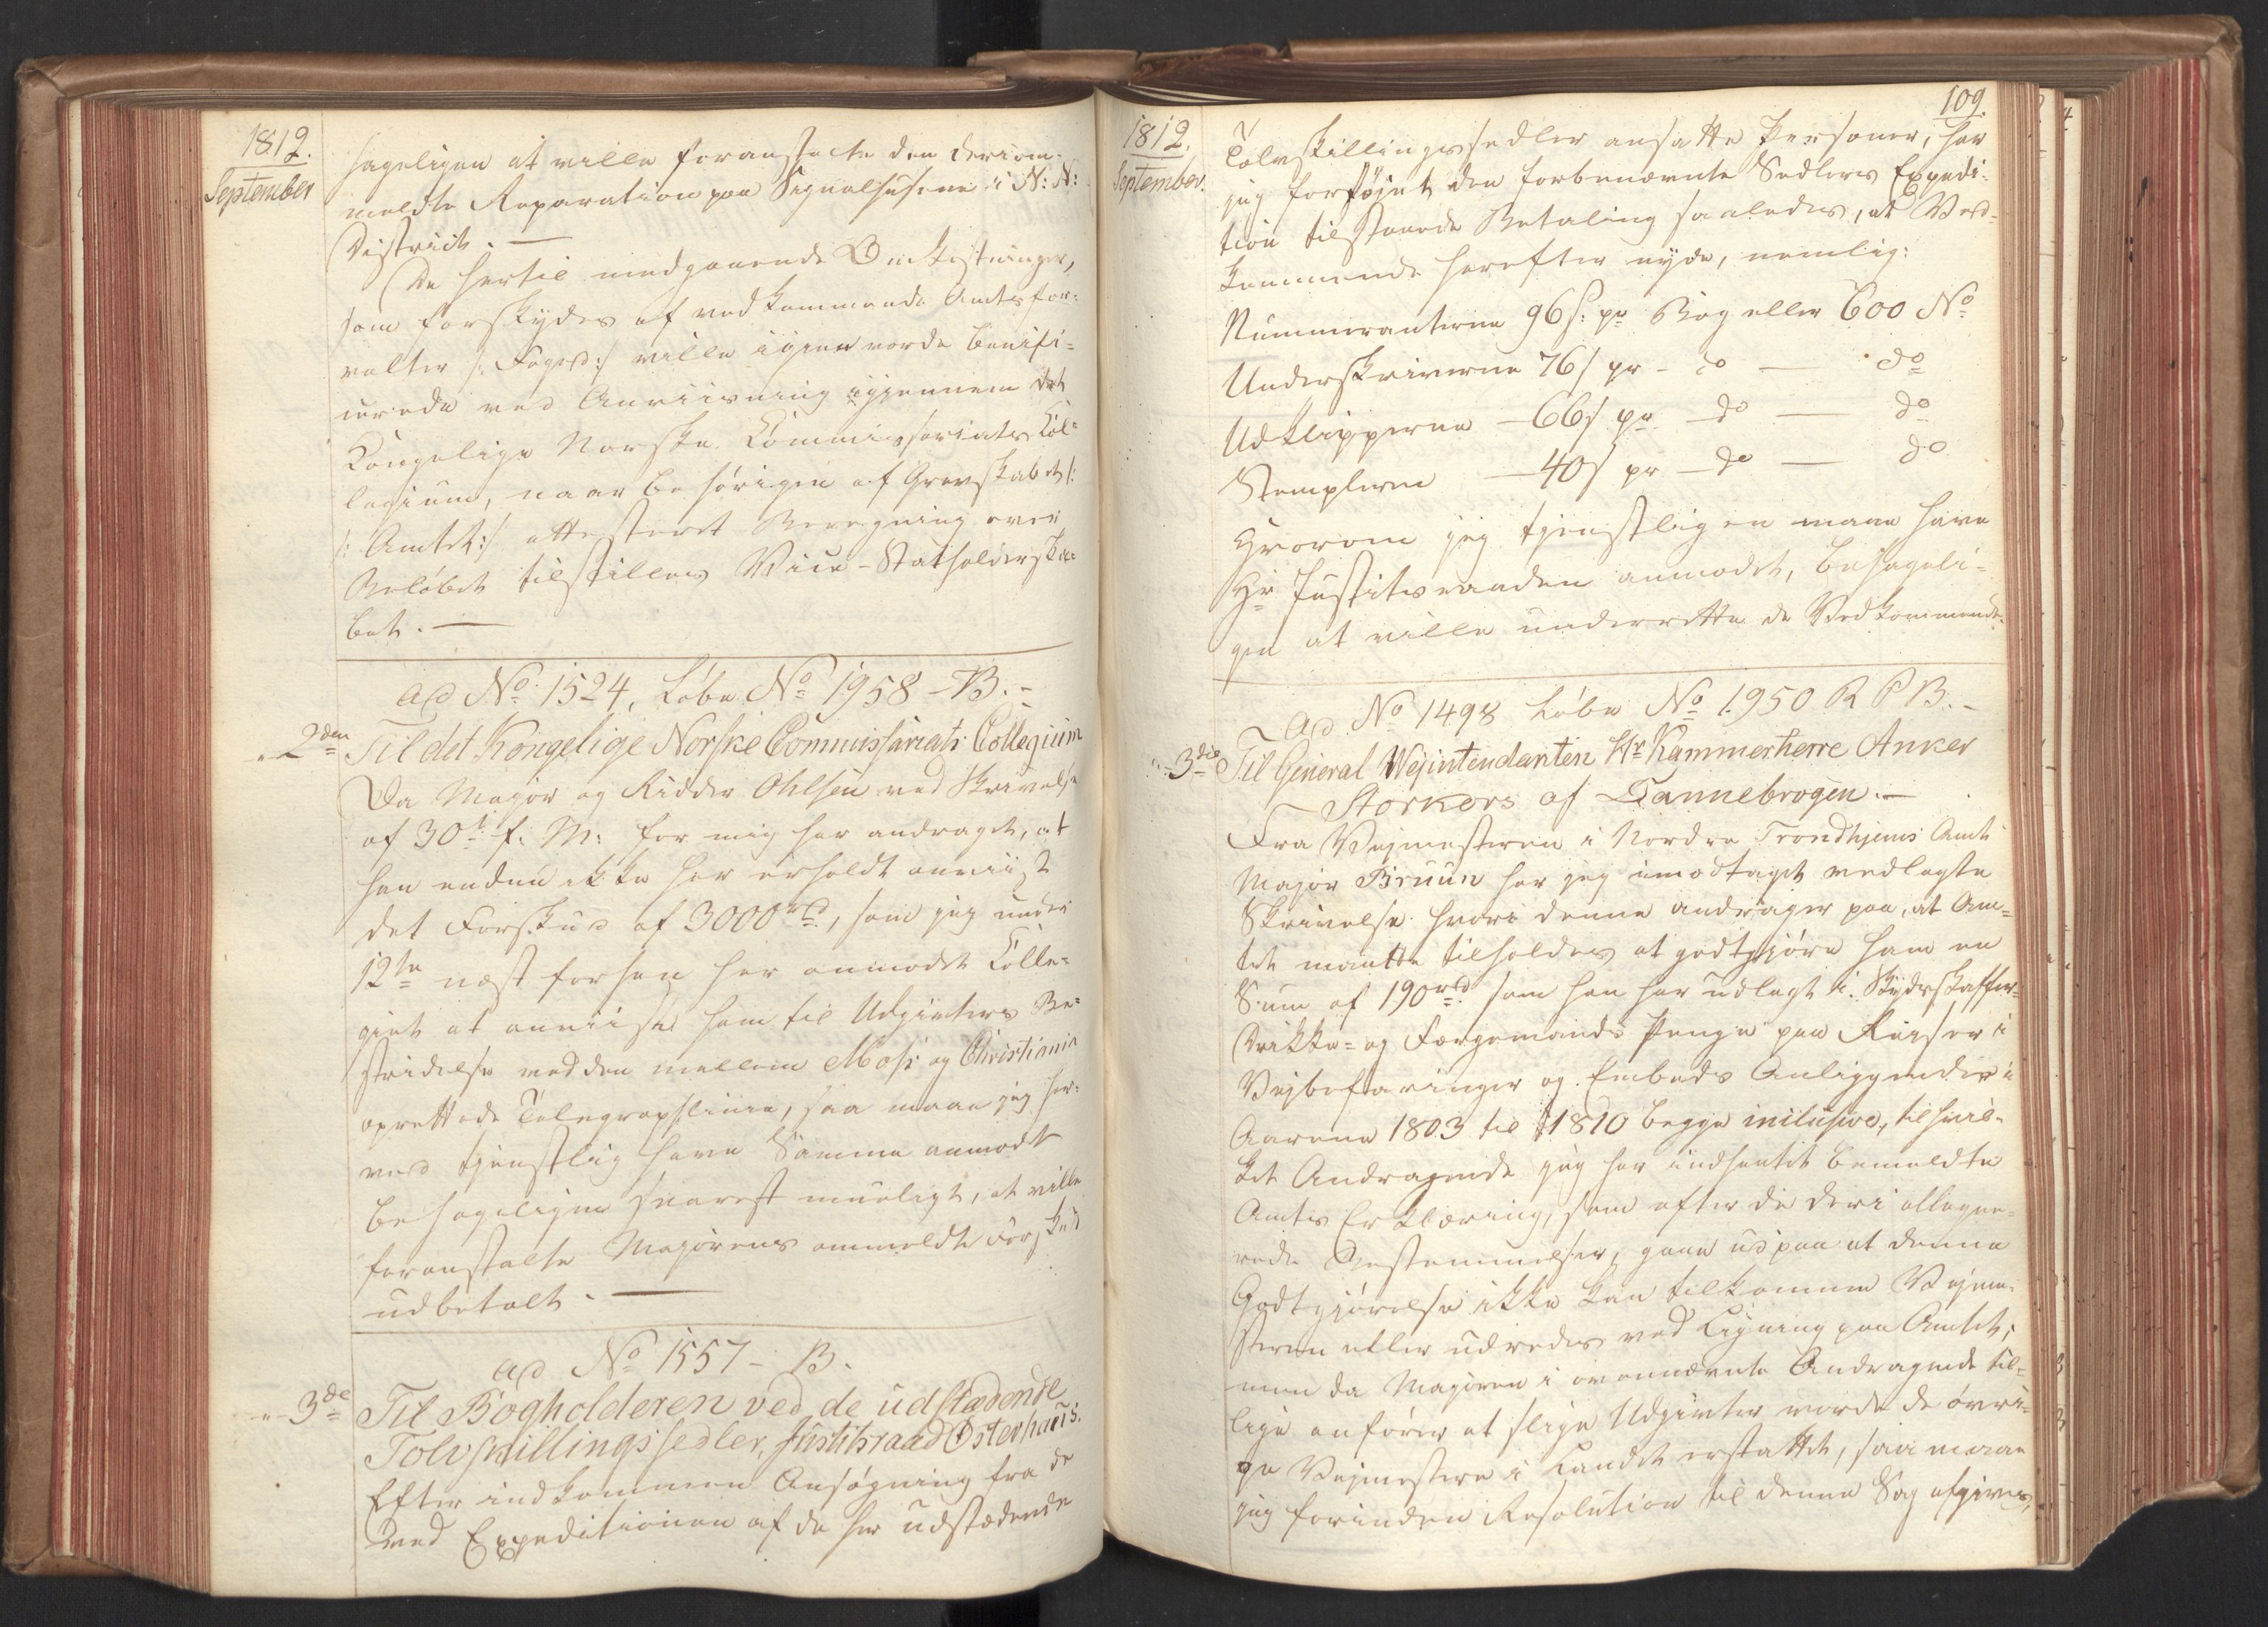 1812.
September
hageligen at ville foranstalte den deriom-
meldte Reparation paa Signalhusene i N: N:
District. —
De hertil medgaaende Omkostninger,
som forskydes af vedkommende Amtsfor-
valter /: Foged:/ ville igien vorde benifi-
cerede ved Anviisning igiennem det
Kongelige Norske Commissariats Col-
legium, naar behørigen af Grevskabet /:
/: Amtet:/ attesteret Beregning over
Beløbet tilstilles Vice-Statholderska-
bet. —
ad No 1524, Løbe No 1958 – B. –
2den Til det Kongelige Norske Commissariats Collegium
Da Major og Ridder Ohlsen ved Skrivelse
af 30te f: M: for mig har andraget, at
han endnu ikke har erholdt anviist
det Forskud af 3000 rd, som jeg under
12te næst forhen har anmodet Colle-
giet at anviise ham til Udgivters Be-
stridelse ved den mellem Moss og Christiania
oprettede Telegraphlinie, saa maae jeg her-
ved tjenstlig have Samme anmodet
behageligen snarest mueligt, at ville
foranstalte Majorens ommeldte Forskud
udbetalt. —
ad No 1557 – B.
3de Til Bogholderen ved de udstædende
Tolvskillingssedler, Justitsraad Osterhaus.
Efter indkommen Ansøgning fra de
ved Expeditionen af de her udstædende
109
1812.
September.
Tolvskillingssedler ansatte Personer, har
jeg forhøjet den forbenævnte Sedlers Expedi-
tion tilstaaede Betaling saaledes, at Ved-
kommende herefter nyde, nemlig:
Nummeranterne 96 s: pr Bog eller 600 No
Underskriverne 76 s pr – do — do
Udklipperne – 66 s pr – do — do
Stemplerne – 40 s pr – do — do
Hvorom jeg tjenstligen maae have
Hr Justitsraaden anmodet, behageli-
gen at ville underrette de Vedkommende.
Ad No 1498 Løbe No 1950 R P B. –
3die Til General Vejintendanten Hr Kammerherre Anker
Storkors af Dannebrogen. —
Fra Vejmesteren i Nordre Trondhjems Amt
Major Bruun har jeg imodtaget vedlagte
Skrivelse hvori denne andrager paa, at Am-
tet maatte tilholdes at godtgjøre ham en
Sum af 190 rd som han har udlagt i Skydsskaffer-
Drikke- og Færgemands Penge paa Reiser i
Vejbefaringer og Embeds Anliggender i
Aarene 1803 til 1810 begge inclusive, til hvil-
ket Andragende jeg har indhentet bemeldte
Amts Erklæring, som efter de deri allegue-
rede Bestemmelser, gaae ud paa at denne
Godtgjørelse ikke kan tilkomme Vejme-
steren eller udredes ved Ligning paa Amtet;
men da Majoren i ovennævnte Andragende til-
lige anfører at slige Udgivter vorde de øvri-
ge Vejmestere i Landet erstattet, saa maae
jeg forinden Resolution til denne Sag afgives,